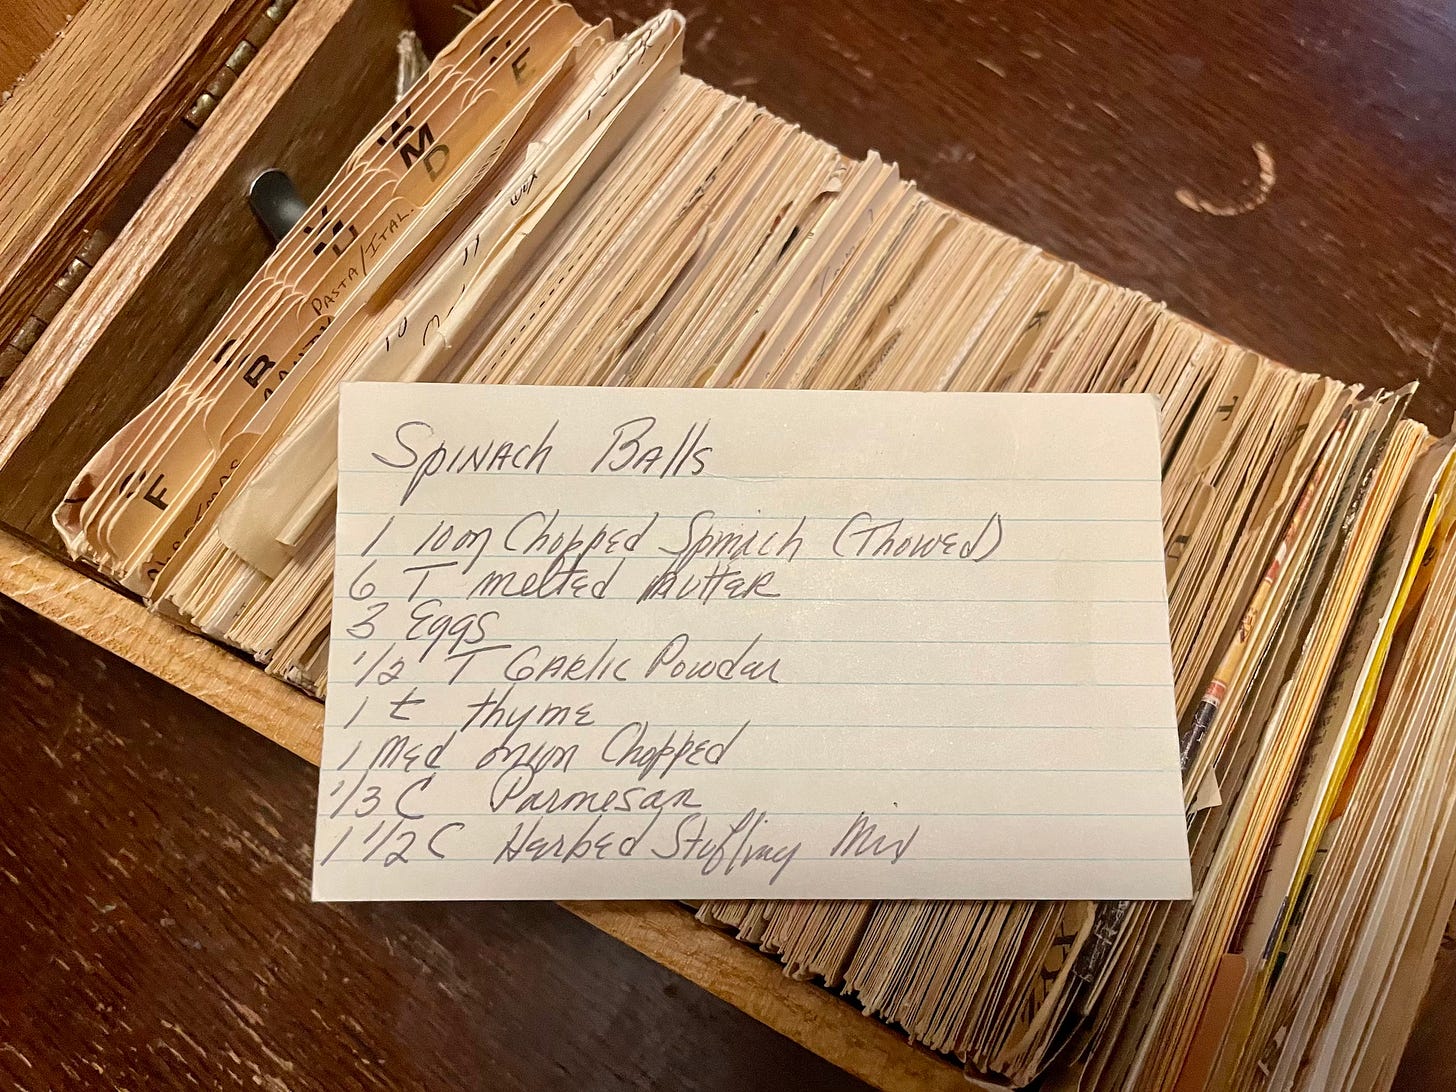 E
W
M
D
PASTA/ITAL.
R
F
T
Spinach Balls
1 10oz Chopped Spinach (Thowed)
6 T melted butter
3 Eggs
1/2 T Garlic Powder
1 t thyme
1 med onion Chopped
1/3 C Parmesan
1 1/2 C Herbed Stuffing Mix